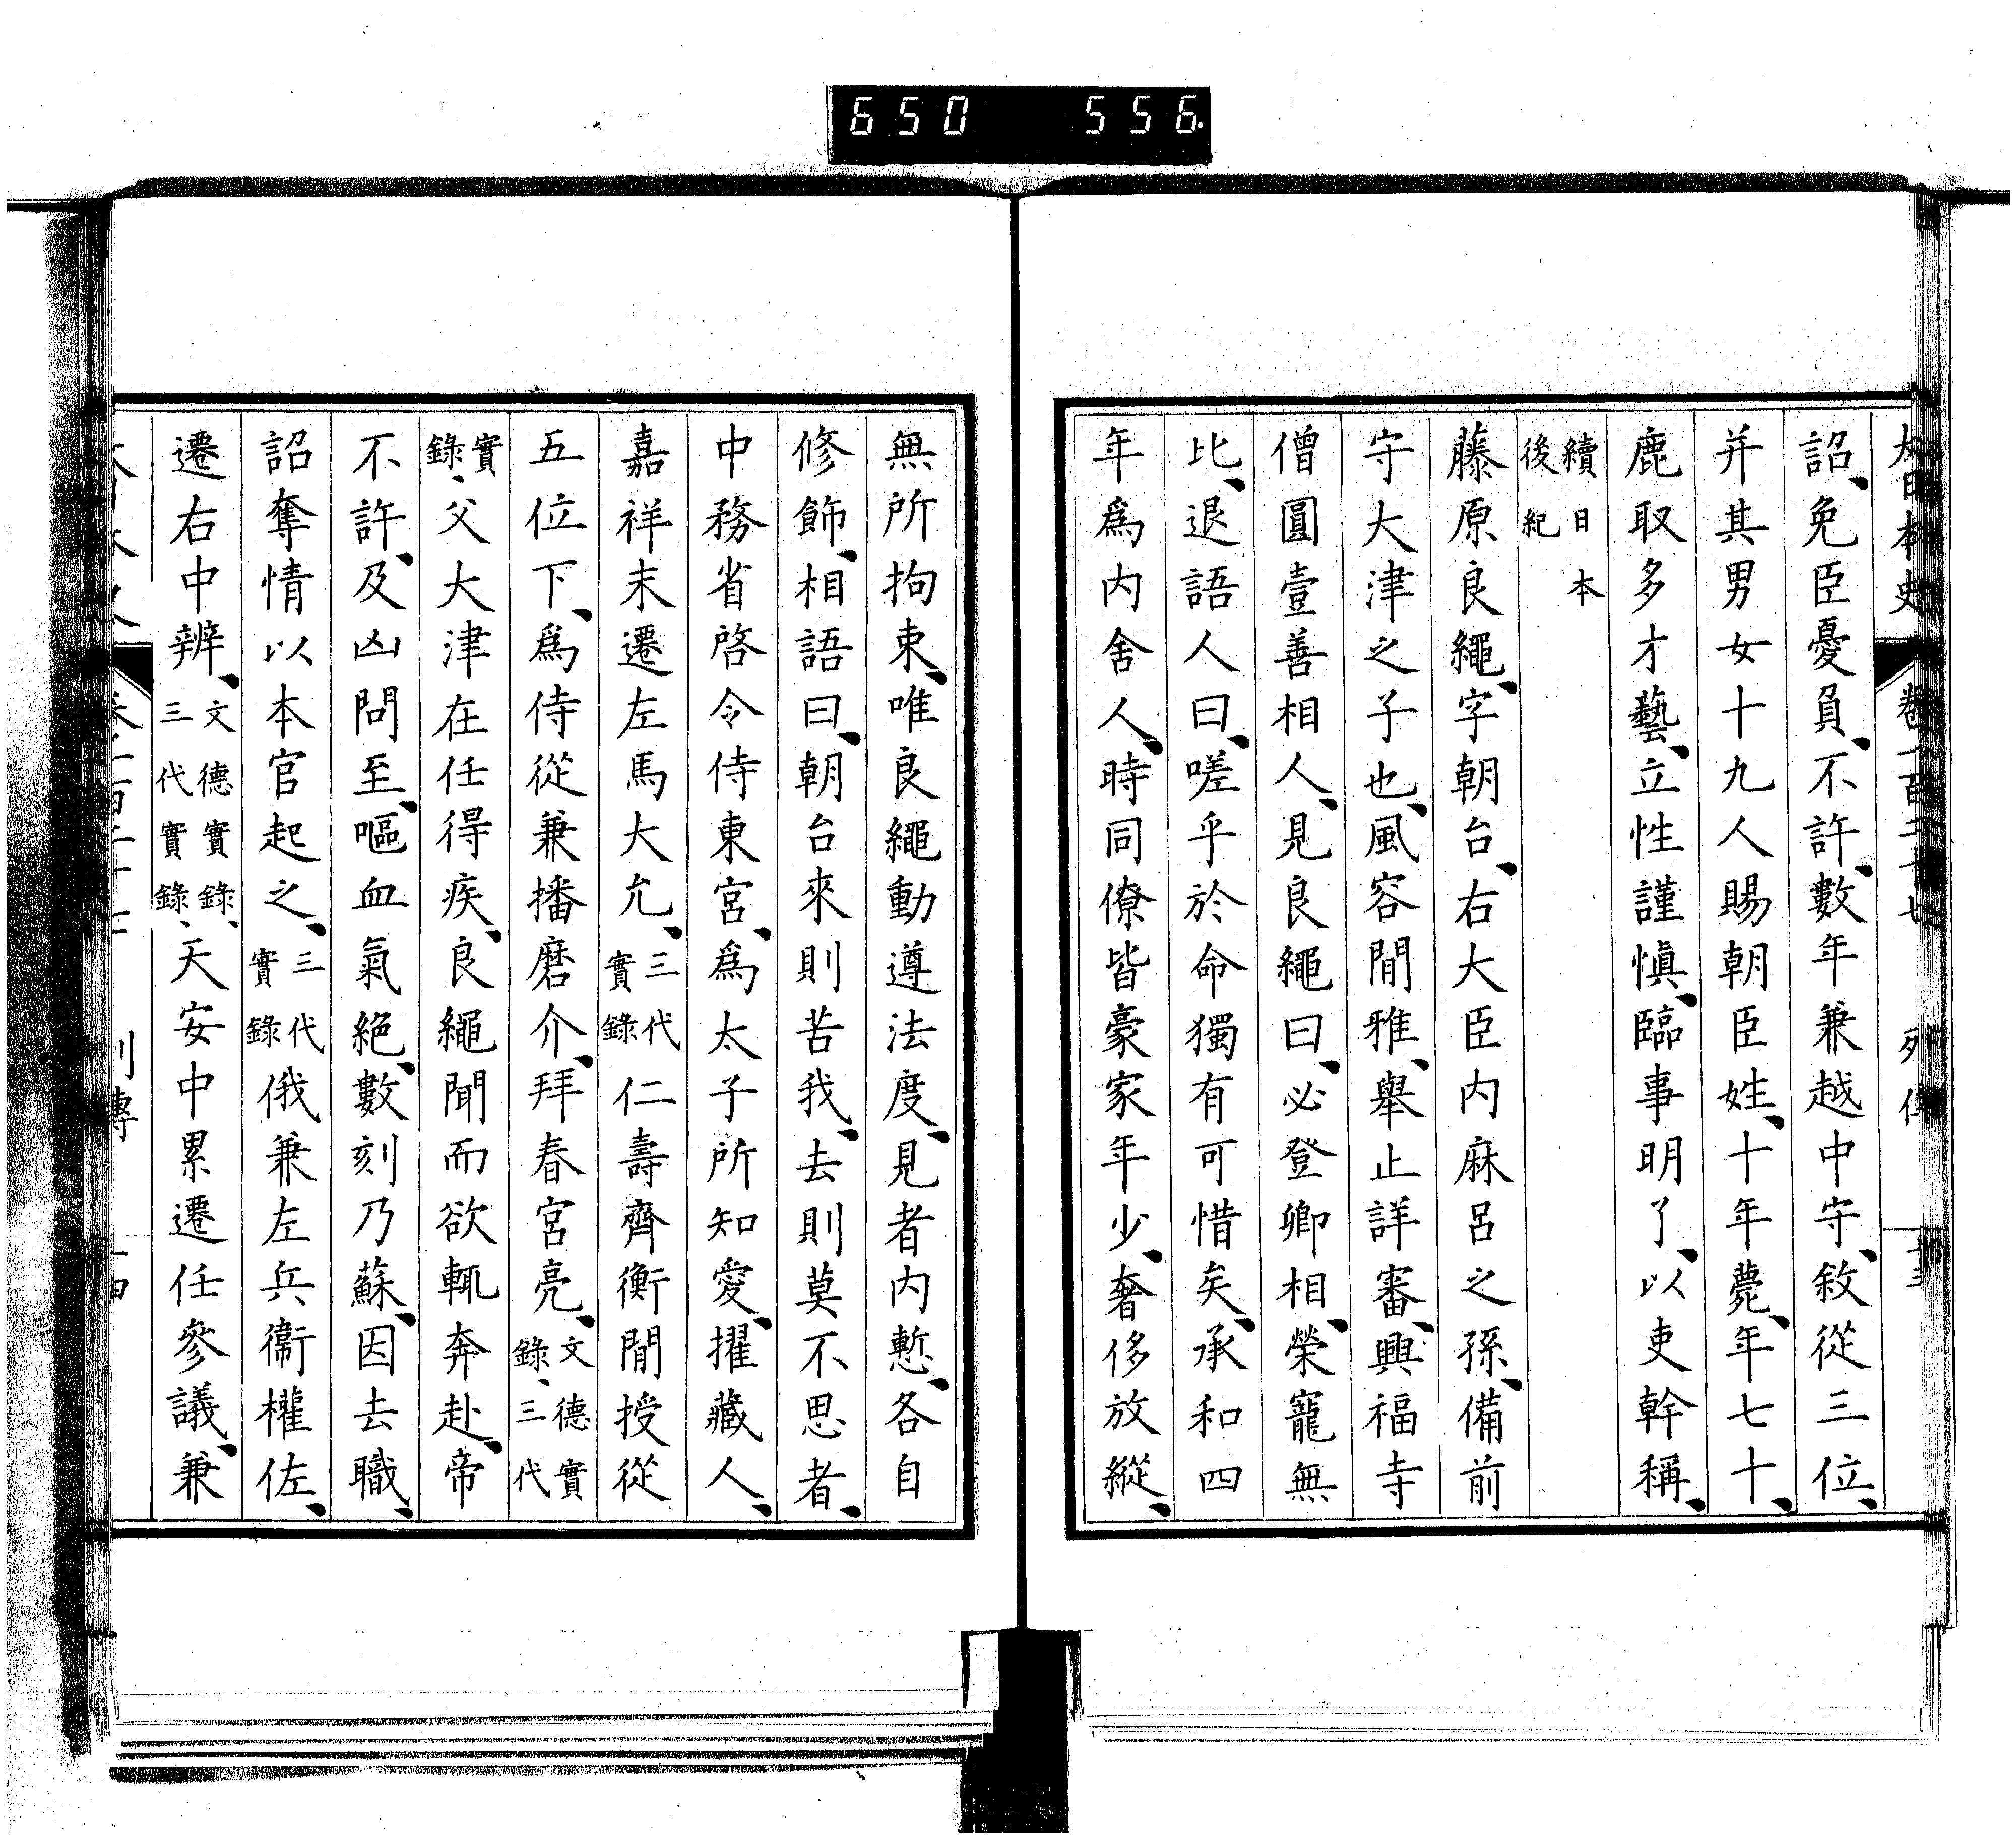 650 556
大日本史 卷一百二十七 列傳 十三
詔、免臣憂負、不許、數年兼越中守、敘從三位、
并其男女十九人賜朝臣姓、十年薨、年七十、
鹿取多才藝、立性謹愼、臨事明了、以吏幹稱、
續日本
後紀
藤原良繩、字朝台、右大臣内麻呂之孫、備前
守大津之子也、風容閒雅、舉止詳審、興福寺
僧圓壹善相人、見良繩曰、必登卿相、榮寵無
比、退語人曰、嗟乎於命獨有可惜矣、承和四
年爲内舍人、時同僚皆豪家年少、奢侈放縱、
無所拘束、唯良繩動遵法度、見者内慙、各自
修飾、相語曰、朝台來則苦我、去則莫不思者、
中務省啓令侍東宮、爲太子所知愛、擢藏人、
嘉祥末遷左馬大允、三代實錄仁壽齊衡閒授從
五位下、爲侍從兼播磨介、拜春宮亮、文德實錄、三代
實錄、父大津在任得疾、良繩聞而欲輒奔赴、帝
不許、及凶問至、嘔血氣絕、數刻乃蘇、因去職、
詔奪情以本官起之、三代實錄俄兼左兵衞權佐、
遷右中辨、文德實錄、三代實錄、天安中累遷任參議、兼